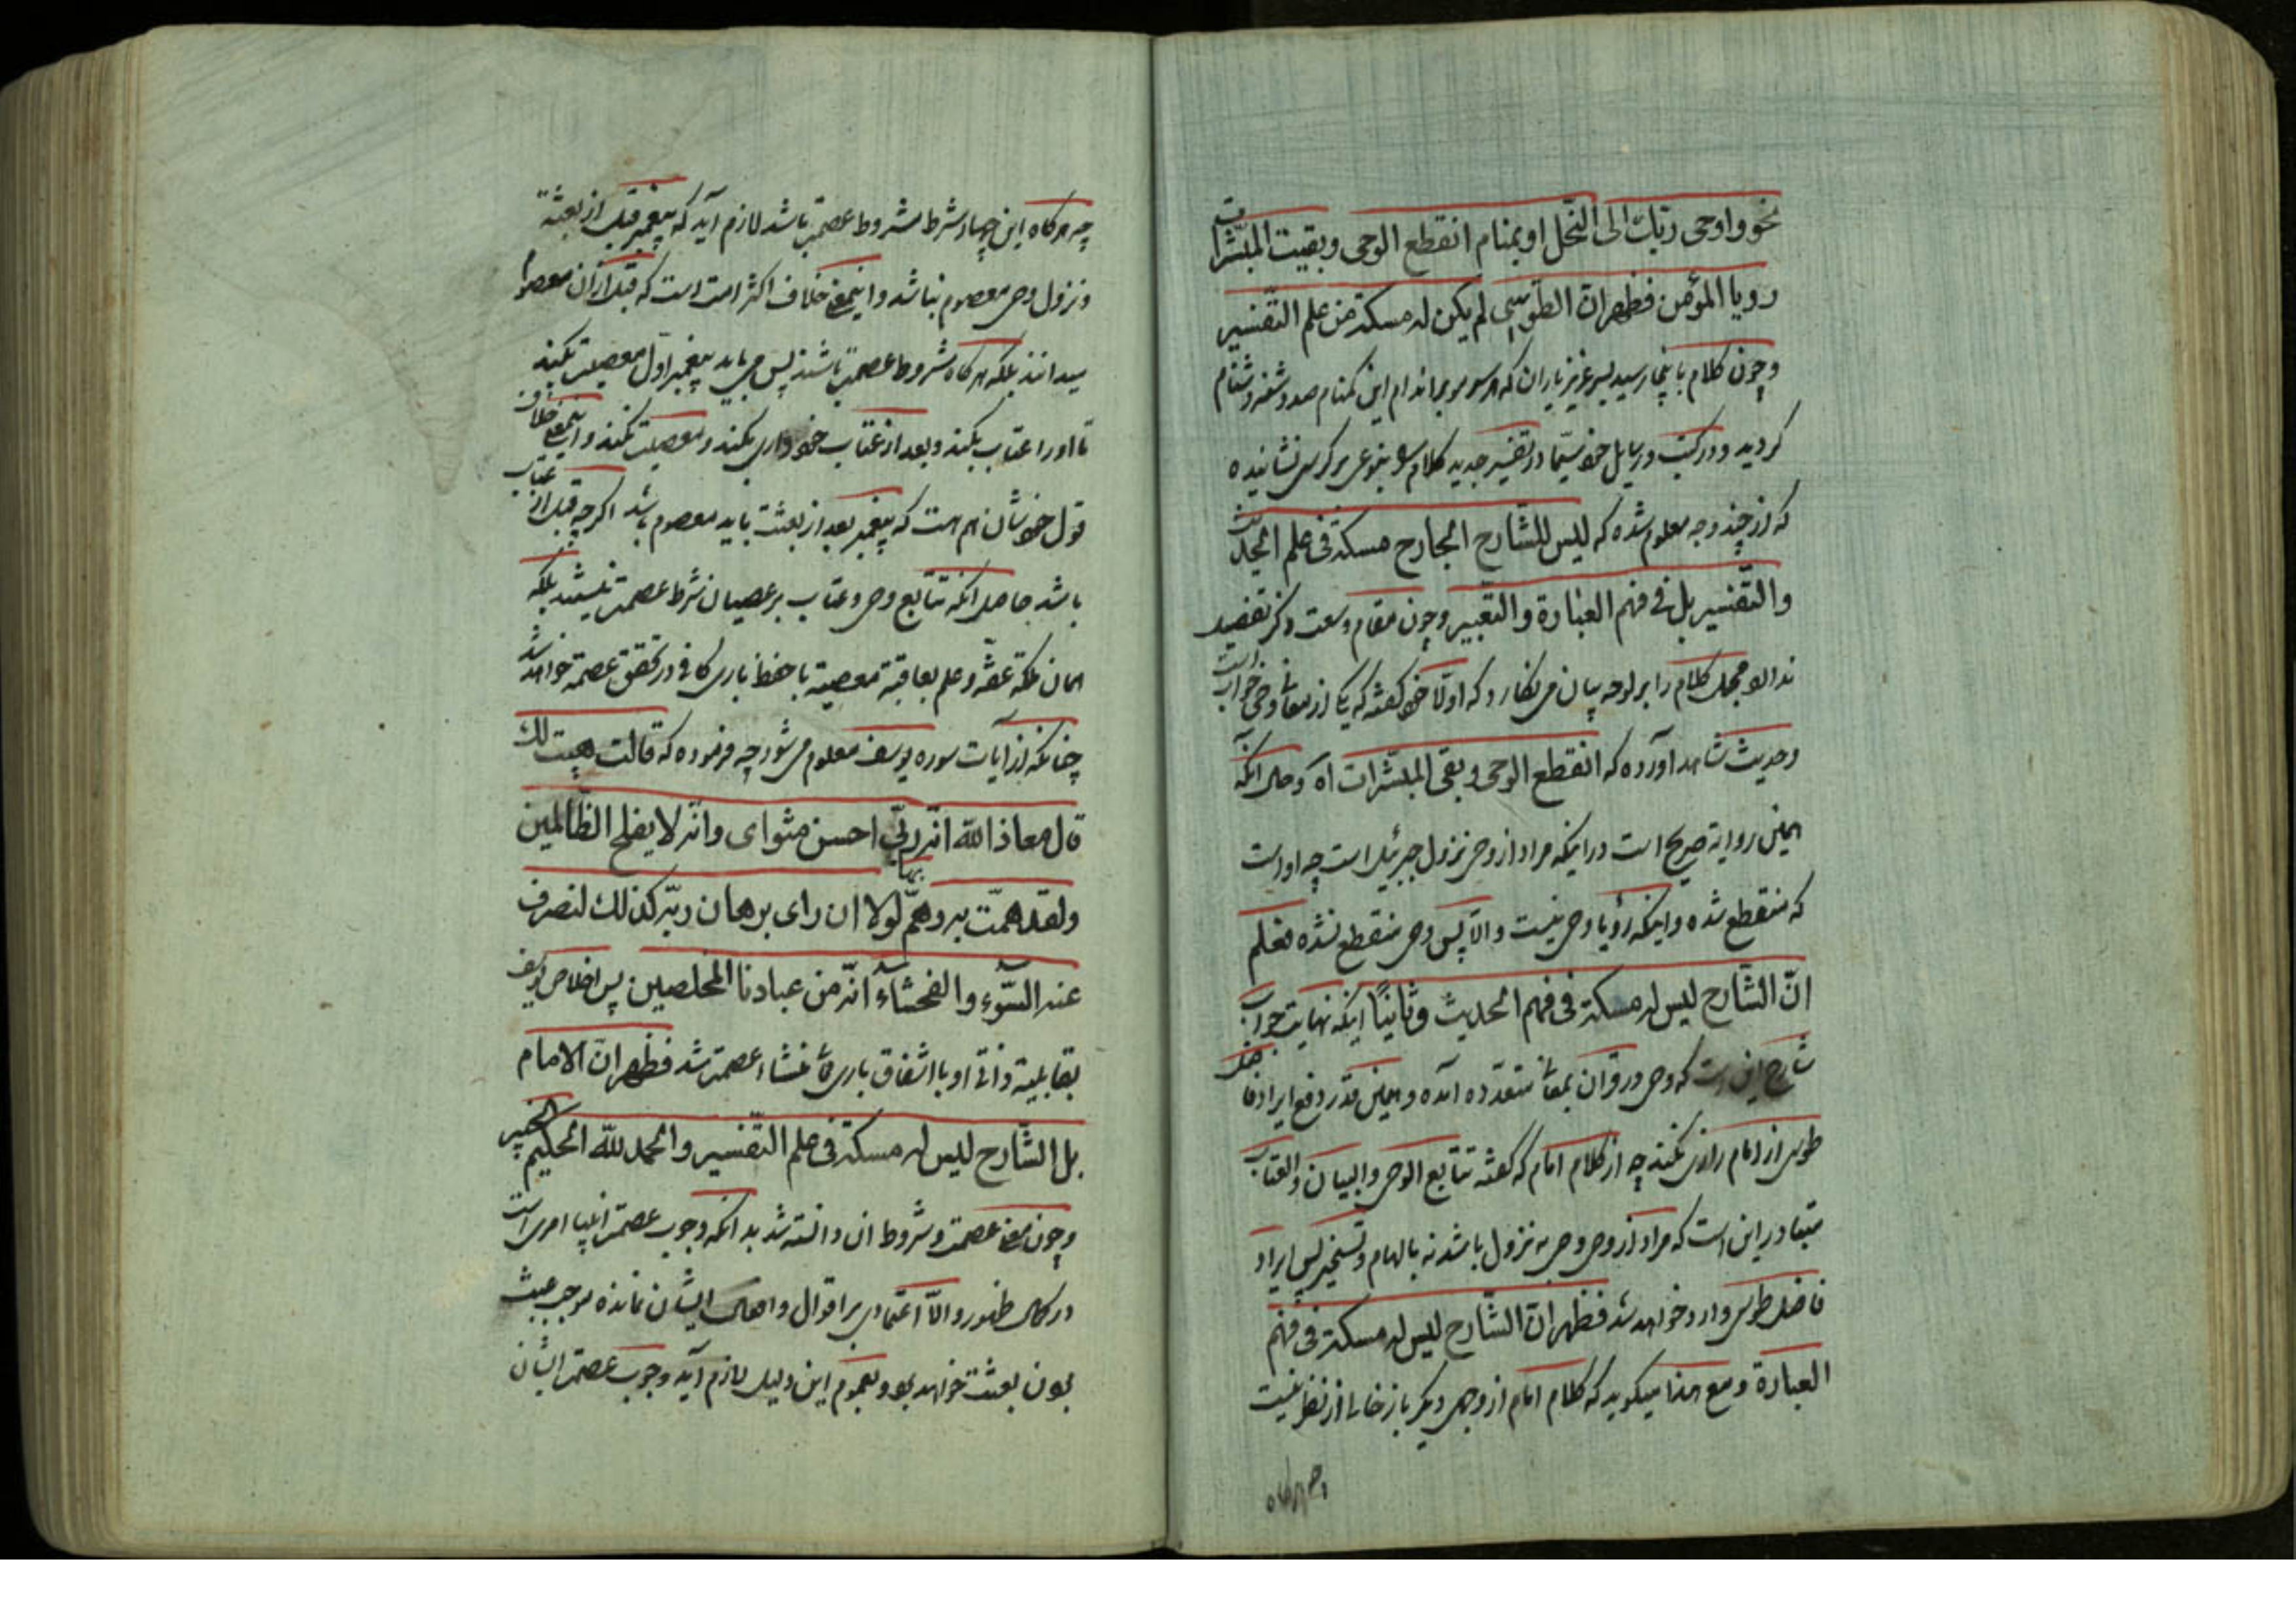 نحو و اوحی ربّک الی النّحل او بمنام انقطع الوحی و بقیت المبشّرات
رویا المؤمن فظهر انّ الطّوسی لم یکن له مسکة من علم التّفسیر
و چون کلام باینجا رسید پسر عزیز یاران که هر سر مو بر اندام این کمنام صد و
کردید و در کتب و رسایل خود سیّما در تفسیر جدید کلام بنوعی بر کرسی نشانیده
که از چند وجه معلوم شده که لیس للشّارح الجارح مسکة فی علم الحدیث
والتّفسیر بل فی فهم العبارة والتّعبیر و چون مقام وسعت ذکر تفصیل
ندارد مجمل کلام را بر لوحه بیان می نکارد که اولا خود کفته که یکی از معانی وحی خواب است
و حدیث شاهد آورده که انقطع الوحی و بقی المبشّرات آه و حال آنکه
همین روایة صریح است در اینکه مراد از وحی نزول جبرئیل است چه او است
که منقطع شده و اینکه رؤیا وحی نیست و الّا پس وحی منقطع نشده فعلم
انّ الشّارح لیس له مسکة فی فهم الحدیث و ثانیًا اینکه نهایت جواب
شارح این است که وحی در قران بمعانی متعدّده آمده و همین قدر دفع ایراد فاضل
طوسی از امام رازی نکند چه از کلام امام که کفته تتابع الوحی و البیان و العتاب
متبادر این است که مراد از وحی وحی به نزول باشد نه بالهام و تسخیر پس ایراد
فاضل طوسی وارد خواهد شد فظهر انّ الشّارح لیس له مسکة فی فهم
العبارة و مع هذا میکوید که کلام امام از وجهی دیکر باز خالی از نظر نیست
چه هرکاه
چه هرکاه این چهار شرط مشروط عصمة باشد لازم آید که پیغمبر قبل از بعثة
و نزول وحی معصوم نباشد و اینمعنی خلاف اکثر امت است که قبل از ان معصوم
میدانند بلکه هرکاه شروط عصمت باشند پس می باید پیغمبر اوّل معصیت بکند
تا اورا عتاب بکنند و بعد از عتاب خودداری بکند و معصیت نکند و اینمعنی خلاف
قول خودشان هم هست که پیغمبر بعد از بعثت باید معصوم باشد اکرچه قبل از عتاب
باشد حاصل آنکه تتابع وحی و عتاب بر عصیان شرط عصمت نیستند بلکه
همان ملکه عفّة و علم بعاقبة معصیة با حفظ باری کافی در تحقق عصمة خواهد شد
چنانکه از آیات سوره یوسف معلوم می شود چه فرموده که قالت هیت لک
قال معاذ الله انّه ربّی احسن مثوای و انّه لا یفلح الظّالمین
ولقد همّت به و همّ بها لولا ان رای برهان ربّه کذلك لنصرف
عنه السّوء والفحشاء انّه من عبادنا المخلصین پس اخلاص یوسف
بقابلیة ذاتی او با اشفاق باری تع منشاء عصمت شد فظهر انّ الامام
بل الشّارح لیس له مسکة فی علم التّفسیر والحمد للّه الحکیم الخبیر
و چون معنی عصمت و شروط ان دانسته شد بدانکه وجوب عصمت انبیا امری است
در کمال ظهور و الّا اعتمادی بر اقوال و افعال ایشان نمانده موجب عبث
بودن بعثت خواهد بود و بعموم این دلیل لازم آید وجوب عصمت ایشان